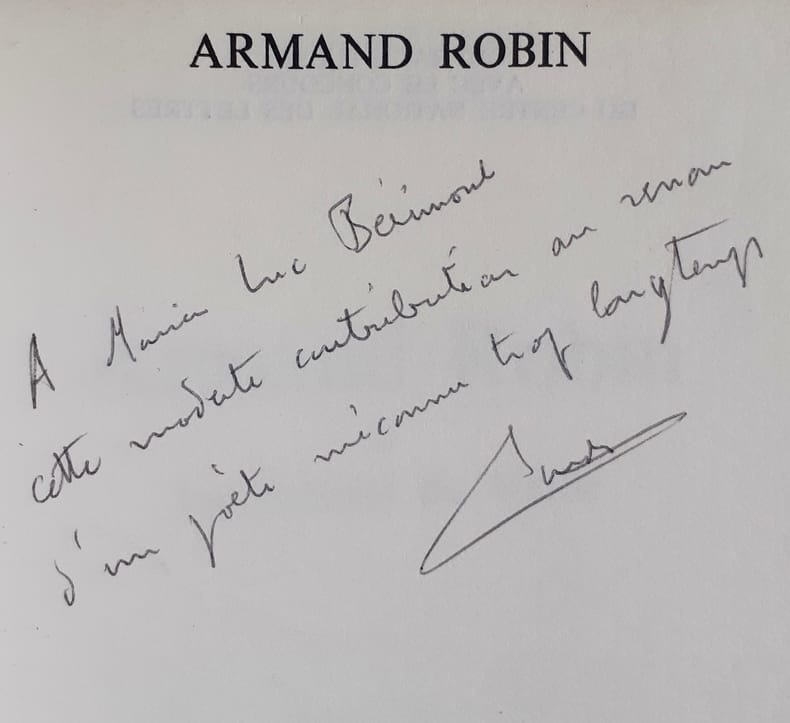 ARMAND ROBIN
A Marie Luc Bérimont
cette modeste contribution au renom
d'un poète méconnu trop longtemps